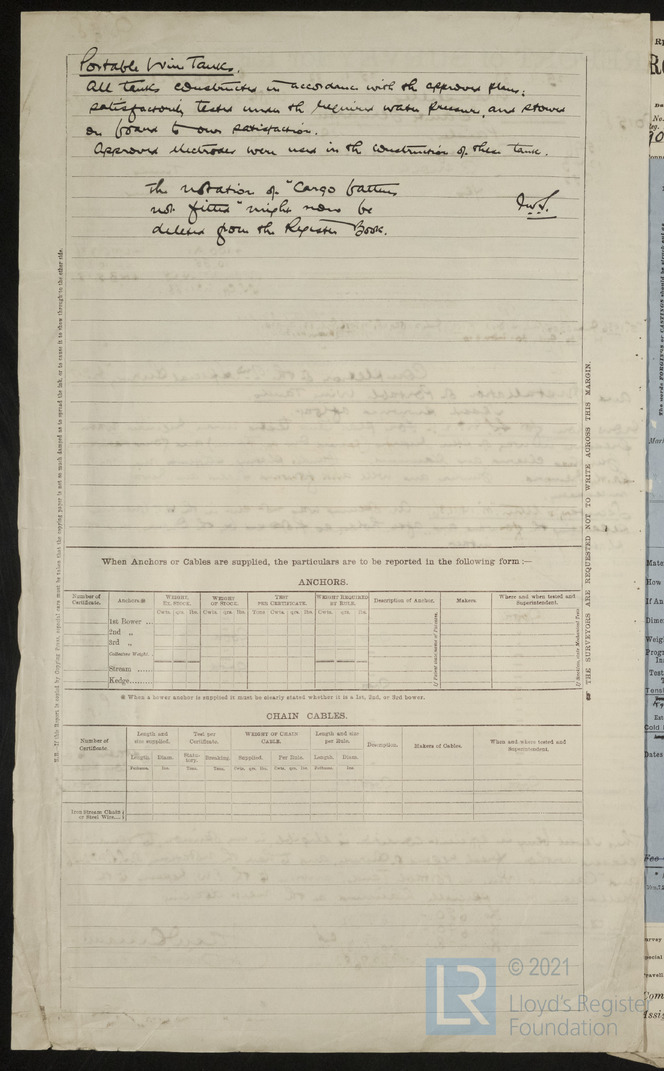 Portable Wine Tanks.
All tanks constructed in accordance with the approved plans;
satisfactorily tested under the required water pressure, and stowed
on board to our satisfaction.
Approved electrodes were used in the construction of these tanks.
The notation of "Cargo battens
not fitted" might now be
deleted from the Register Book.
THE SURVEYORS ARE REQUESTED NOT TO WRITE ACROSS THIS MARGIN.
When Anchors or Cables are supplied, the particulars are to be reported in the following form :—
ANCHORS.
Number of Certificate. Anchors※ WEIGHT, EX. STOCK. WEIGHT OF STOCK. TEST PER CERTIFICATE. WEIGHT REQUIRED BY RULE. Description of Anchor. Makers. Where and when tested and Superintendent.
Cwts. qrs. lbs. Cwts. qrs. lbs. Tons Cwts. qrs. lbs. Cwts. qrs. lbs.
1st Bower ...
2nd „
3rd „
Collective Weight.
Stream ......
Kedge........
※ When a bower anchor is supplied it must be clearly stated whether it is a 1st, 2nd, or 3rd bower.
CHAIN CABLES.
Number of Certificate. Length and size supplied. Test per Certificate. WEIGHT OF CHAIN CABLE. Length and size per Rule. Description. Makers of Cables. When and where tested and Superintendent.
Length. Diam. Statutory. Breaking. Supplied. Per Rule. Length. Diam.
Fathoms. Ins. Tons. Tons. Cwts. qrs. lbs. Cwts. qrs. lbs. Fathoms. Ins.
Iron Stream Chain
or Steel Wire....
LR
© 2021
Lloyd's Register
Foundation